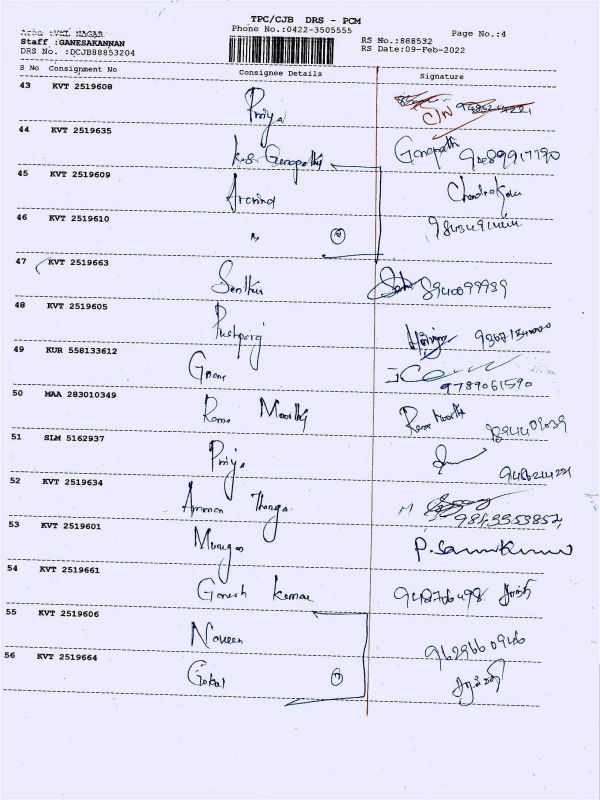 TPC/CJB DRS - PCM
Area :VKL NAGAR Phone No.:0422-3505555 Page No.:4
Staff :GANESAKANNAN RS No.:888532
DRS No. :DCJB88853204 RS Date:09-Feb-2022
S No Consignment No Consignee Details Signature
43 KVT 2519608 Priya C/N
44 KVT 2519635 K.S Ganapathi Ganapathi 9489917790
45 KVT 2519609 Arvind
46 KVT 2519610
47 KVT 2519663 Senthil 8940099939
48 KVT 2519605 Pushparaj
49 KUR 558133612 Gnana 9789061590
50 MAA 283010349 Rama Moorthy
51 SLM 5162937 Priya
52 KVT 2519634 Amman Thanga 9843353852
53 KVT 2519601 Murugan
54 KVT 2519661 Ganesh Kumar 948766498
55 KVT 2519606 Naveen 9629660946
56 KVT 2519664 Gokul